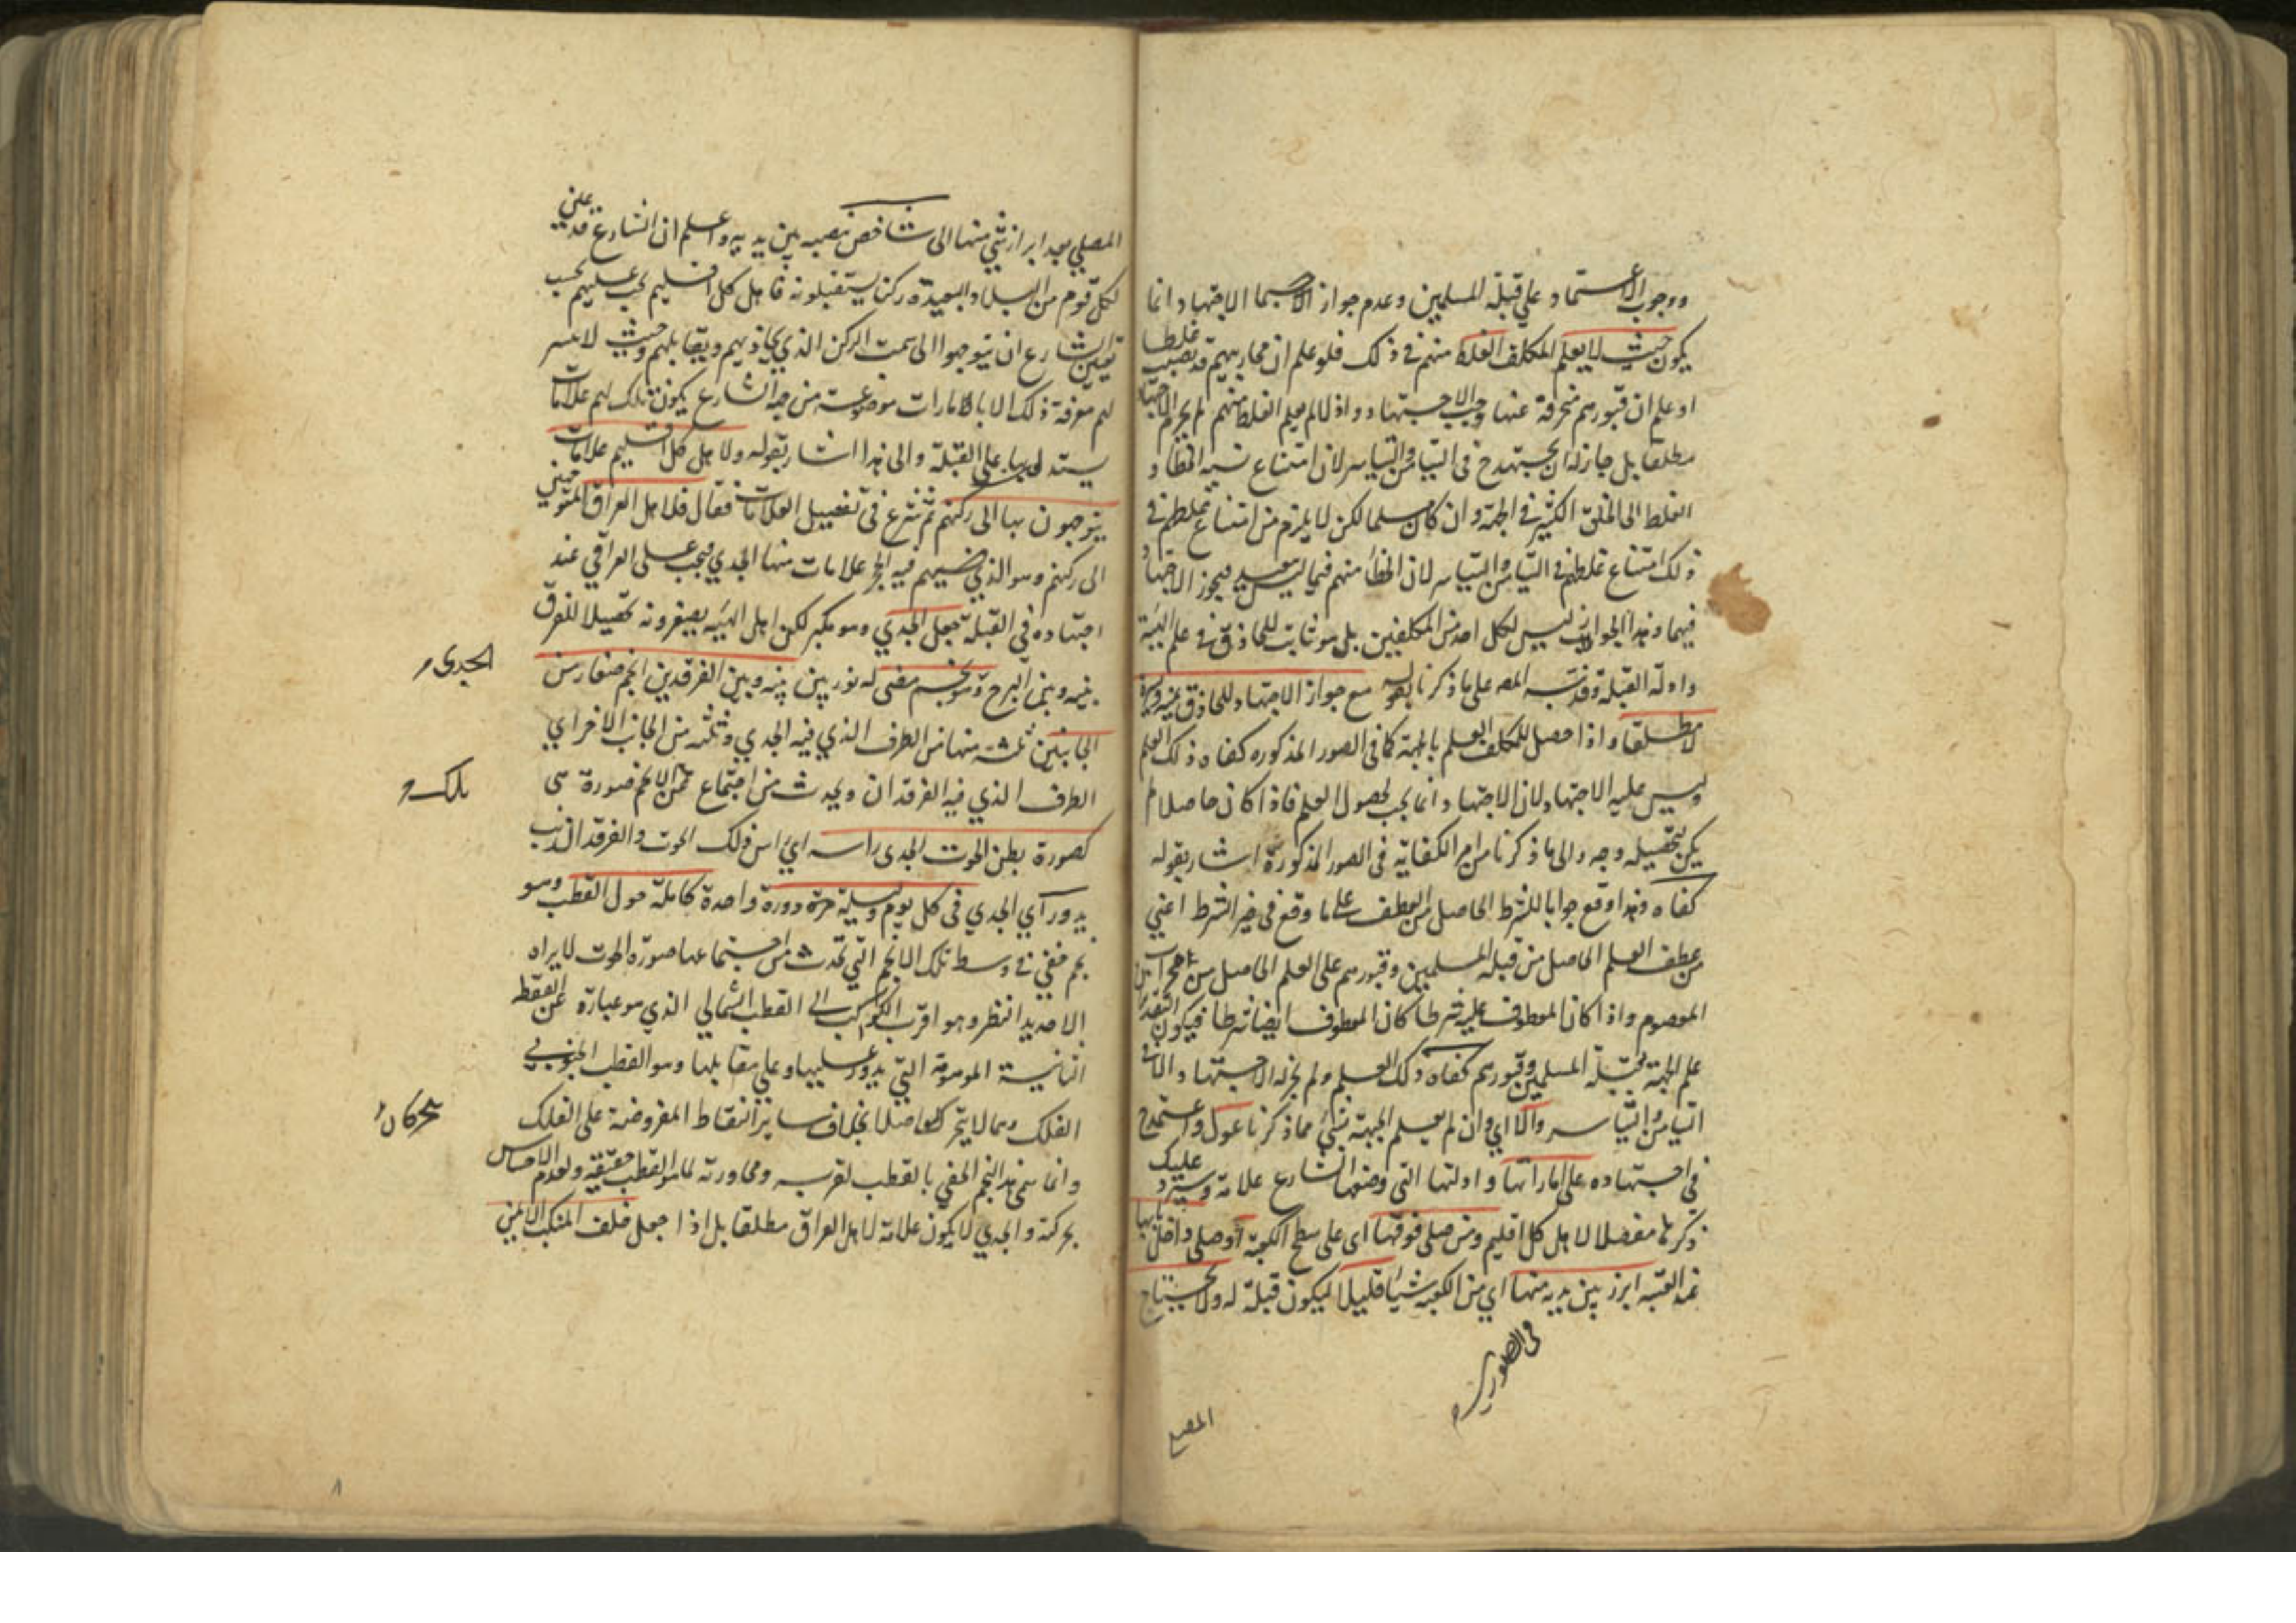 ووجوب الاعتماد علي قبلة المسلمين وعدم جواز الاجتهاد انما
يكون حيث لا يعلم المكلف الغلط منهم في ذلك فلو علم ان محاريبهم قد نصبت غلطا
او علم ان قبورهم منحرفة عنها وجب الاجتهاد واذا لم يعلم الغلط منهم لم يحرم الاجتهاد
مطلقا بل جاز له ان يجتهد في التيامن والتياسر لان امتناع نسبة الخطاء و
الغلط الى الخلق الكثير في الجهة وان كان مسلما لكن لا يلزم من امتناع غلطهم في
ذلك امتناع غلطهم في التيامن والتياسر لان الخطأ منهم فيهما ليس ببعيد فيجوز الاجتهاد
فيهما وهذا الجواز ليس لكل احد من المكلفين بل هو ثابت للحاذق في علم الهيئة
وادلة القبلة وقد نبه المص على ما ذكرنا بقوله مع جواز الاجتهاد للحاذق يمنة ويسرة
لا مطلقا واذا حصل للمكلف العلم بالجهة كما في الصور المذكوره كفاه ذلك العلم
وليس عليه الاجتهاد لان الاجتهاد انما يجب لحصول العلم فاذا كان حاصلا لم
يكن لتحصيله وجه والى ما ذكرنا من الكفاية في الصور المذكورة اشار بقوله
كفاه وهذا وقع جوابا للشرط الحاصل من العطف على ما وقع في خبر الشرط اعني
من عطف العلم الحاصل من قبلة المسلمين وقبورهم على العلم الحاصل من محراب
المعصوم واذا كان المعطوف عليه شرطا كان المعطوف ايضا شرطا فيكون التقدير
علم الجهة بقبلة المسلمين وقبورهم كفاه ذلك العلم ولم يجز له الاجتهاد الا في
التيامن والتياسر والا اي وان لم يعلم الجهة بشئ مما ذكرنا عول واعتمد
في اجتهاده على اماراتها وادلتها التي وضعها الشارع علامة وسيرد عليك
ذكرها مفصلا لاهل كل اقليم ومن صلى فوقها اى على سطح الكعبة او صلى داخل بابها
عند العتبه ابرز بين يديه منها اي من الكعبه شيئا قليلا ليكون قبلة له ولا يحتاج
في الصورتين
المصلي
المصلي بعد ابراز شئ منها الى شاخص ينصبه بين يديه واعلم ان الشارع قد عين
لكل قوم من البلاد البعيدة ركنا يستقبلونه فاهل كل اقليم يجب عليهم بحسب
تعيين الشارع ان يتوجهوا الى سمت الركن الذي يحاذيهم ويقابلهم وحيث لا يتيسر
لهم معرفة ذلك الا بالامارات موضوعة من جهة الشارع يكون تلك لهم علامات
يستدل بها على القبلة والى هذا اشار بقوله ولاهل كل اقليم علامات
يتوجهون بها الى ركنهم ثم شرع في تفصيل العلامات فقال فلاهل العراق المتوجهين
الى ركنهم وهو الذي فيه الحجر علامات منها الجدي فيجب على العراقي عند
اجتهاده في القبلة جعل الجدي وهو مكبر لكن اهل الهيئه يصغرونه تحصيلا للفرق
بينه وبين البرج وهو نجم مضئ له نور بين بينه وبين الفرقدين انجم صغار من
الجدي
الجانبين ثلثة منها من الطرف الذي فيه الجدي وثلثه من الجانب الاخر اي
الطرف الذي فيه الفرقدان ويحدث من اجتماع الانجم صورة هى
تلك
كصورة بطن الحوت الجدى راسه اي راس ذلك الحوت والفرقدان ذنبه
يدور اي الجدي في كل يوم وليلة مرة دورة واحدة كاملة حول القطب وهو
نجم خفي في وسط تلك الانجم التي تحدث من اجتماعها صورة الحوت لا يراه
الا حديد النظر وهو اقرب الكواكب الى القطب الشمالي الذي هو عبارة عن النقطة
الثانية الموهومة التي يدور عليها وعلى مقابلها وهو القطب الجنوبي
الفلك وهما لا يتحركان اصلا بخلاف ساير النقاط المفروضة على الفلك
يتحركان
وانما سمي هذا النجم الخفي بالقطب لقربه ومجاورته لما هو القطب حقيقة ولعدم الاحساس
بحركته والجدي لا يكون علامة لاهل العراق مطلقا بل اذا جعل خلف المنكب الايمن